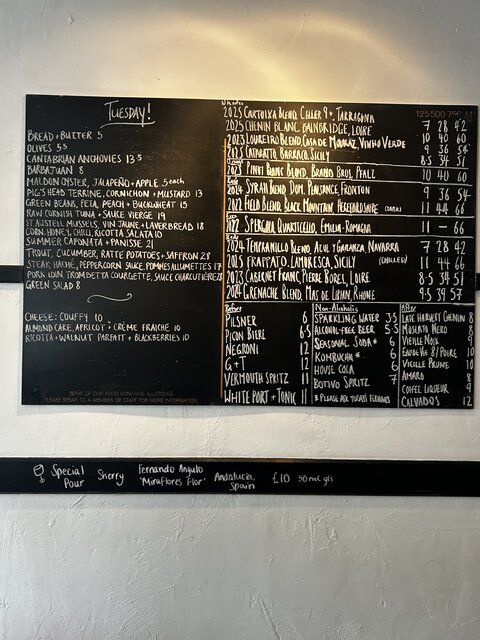 TUESDAY!
BREAD + BUTTER 5
OLIVES 5⁵
CANTABRIAN ANCHOVIES 13⁵
BARBAJUAN 8
MALDON OYSTER, JALAPEÑO + APPLE 5 each
PIG'S HEAD TERRINE, CORNICHON + MUSTARD 13
GREEN BEANS, FETA, PEACH + BUCKWHEAT 15
RAW CORNISH TUNA + SAUCE VIERGE 19
ST AUSTELL MUSSELS, VIN JAUNE + LAVERBREAD 18
CORN, HONEY, CHILLI, RICOTTA SALATA 10
SUMMER CAPONATA + PANISSE 21
TROUT, CUCUMBER, RATTE POTATOES + SAFFRON 28
STEAK HACHÉ, PEPPERCORN SAUCE, POMMES ALLUMETTES 17
PORK LOIN, TROMBETTA COURGETTE, SAUCE CHARCUTIÈRE
GREEN SALAD 8
CHEESE: COUFFY 10
ALMOND CAKE, APRICOT + CRÈME FRAICHE 10
RICOTTA + WALNUT PARFAIT + BLACKBERRIES 10
SOME OF OUR FOOD CONTAINS ALLERGENS
*PLEASE SPEAK TO A MEMBER OF STAFF FOR MORE INFORMATION
125 500 750 ML
2023 CARTOIXA BLEND, CELLER 9+, TARRAGONA 7 28 42
2023 CHENIN BLANC, BAINBRIDGE, LOIRE 10 40 60
2023 LOUREIRO BLEND, CASA DE MOURAZ, VINHO VERDE 9 36 54
CATARATTO, BARRACO, SICILY 8.5 34 51
2023 PINOT BLANC BLEND, BRAND BROS, PFALZ 10 40 60
SYRAH BLEND, DOM. PLAISANCE, FRONTON 9 36 54
2022 FIELD BLEND, BLACK MOUNTAIN, HEREFORDSHIRE (DARK) 11 44 66
2022 SPERGOLA, QUARTICELLO, EMILIA-ROMAGNA 11 — 66
2024 TEMPRANILLO BLEND, AZUL Y GARANZA, NAVARRA 7 28 42
FRAPPATO, LAMORESCA, SICILY (CHILLED) 11 44 66
2023 CABERNET FRANC, PIERRE BOREL, LOIRE 8.5 34 51
GRENACHE BLEND, MAS DE LIBIAN, RHÔNE 9.5 39 57
Before
PILSNER 6
PICON BIÈRE 6.5
NEGRONI 12
G + T 12
VERMOUTH SPRITZ 11
WHITE PORT + TONIC 11
Non-Alcoholic
SPARKLING WATER 3.5
ALCOHOL-FREE BEER 5.5
SEASONAL SODA * 6
KOMBUCHA * 6
HOUSE COLA 6
BOTIVO SPRITZ 7
* PLEASE ASK TODAY'S FLAVOURS
After
LATE HARVEST CHENIN 8
MOSCATO NERO 8
VIEILLE NOIX 9
EAU DE VIE 8/POIRE 10
VIEILLE PRUNE 10
AMARO 8
COFFEE LIQUEUR 9
CALVADOS 12
Special Pour Sherry Fernando Angulo 'Miraflores Flor' Andalucia, Spain £10 50ml gls